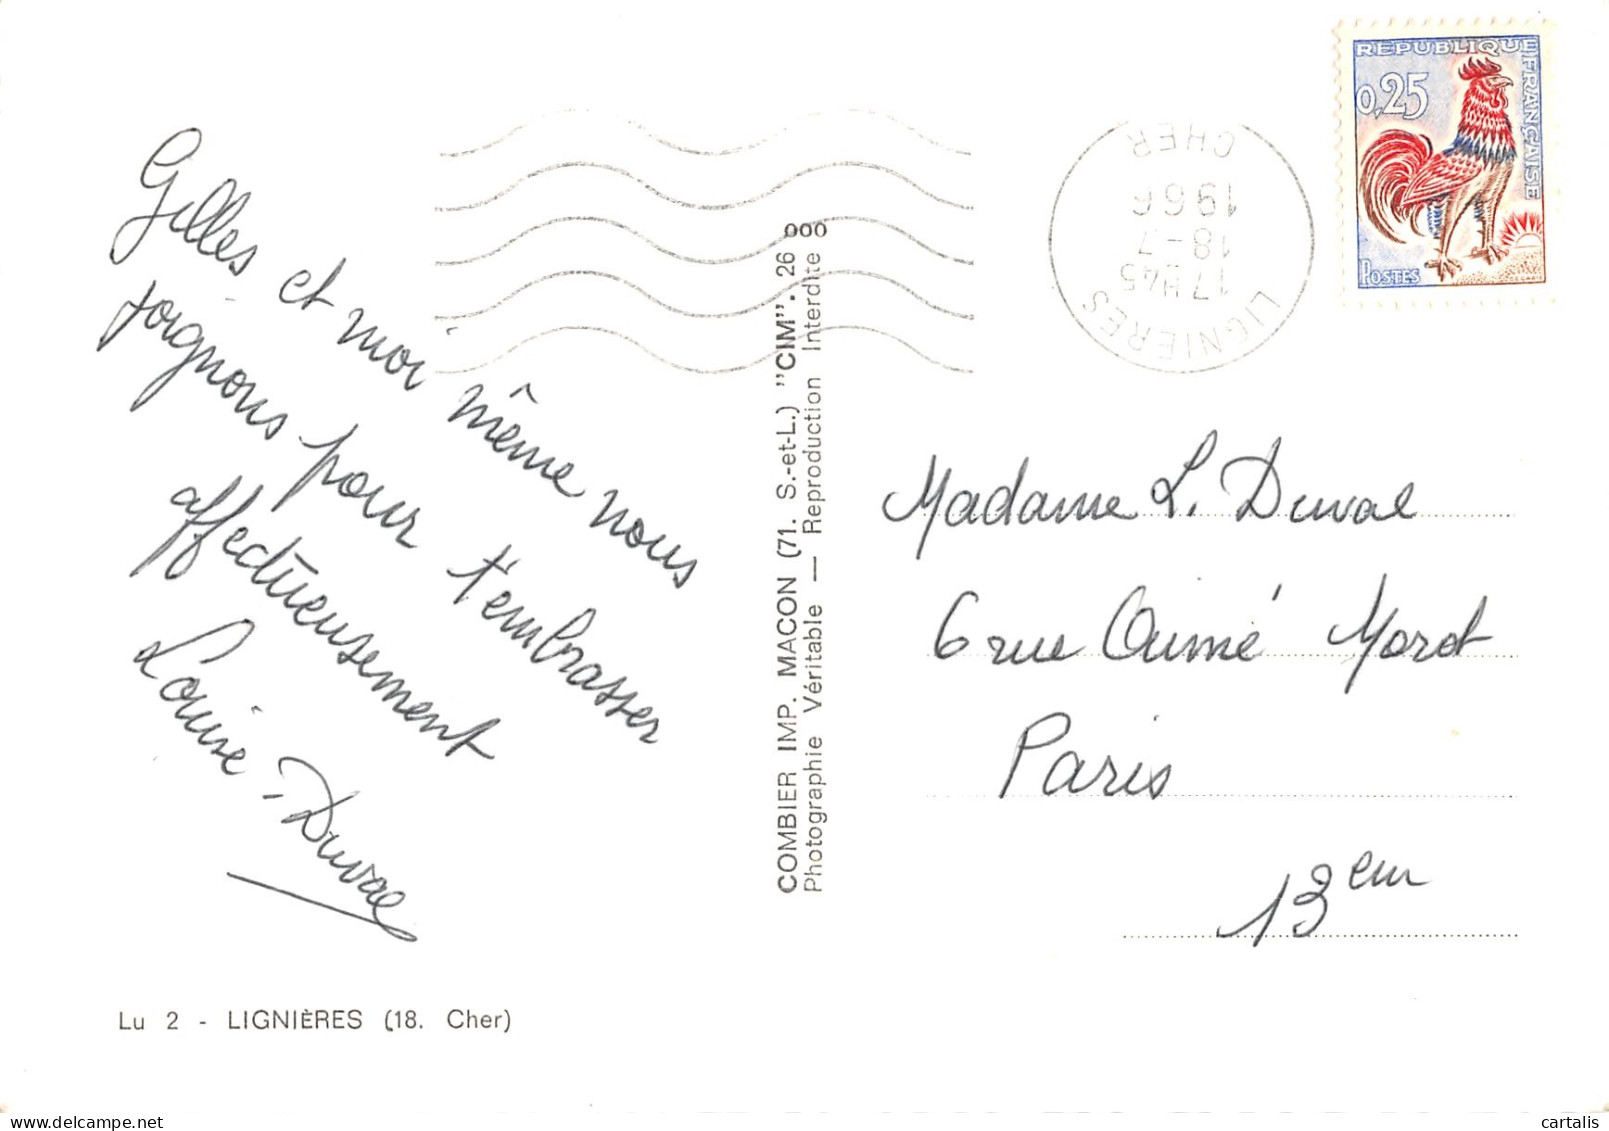 Gilles et moi même nous
joignons pour t'embrasser
affectueusement
Louise Duval
Lu 2 - LIGNIÈRES (18. Cher)
COMBIER IMP. MACON (71. S.-et-L.) "CIM". 26 000
Photographie Véritable — Reproduction Interdite
LIGNIERES
17H45
18-7
1966
CHER
REPUBLIQUE FRANÇAISE
0,25
POSTES
Madame L. Duval
6 rue Aimé Morot
Paris
13eme
cartalis
www.delcampe.net